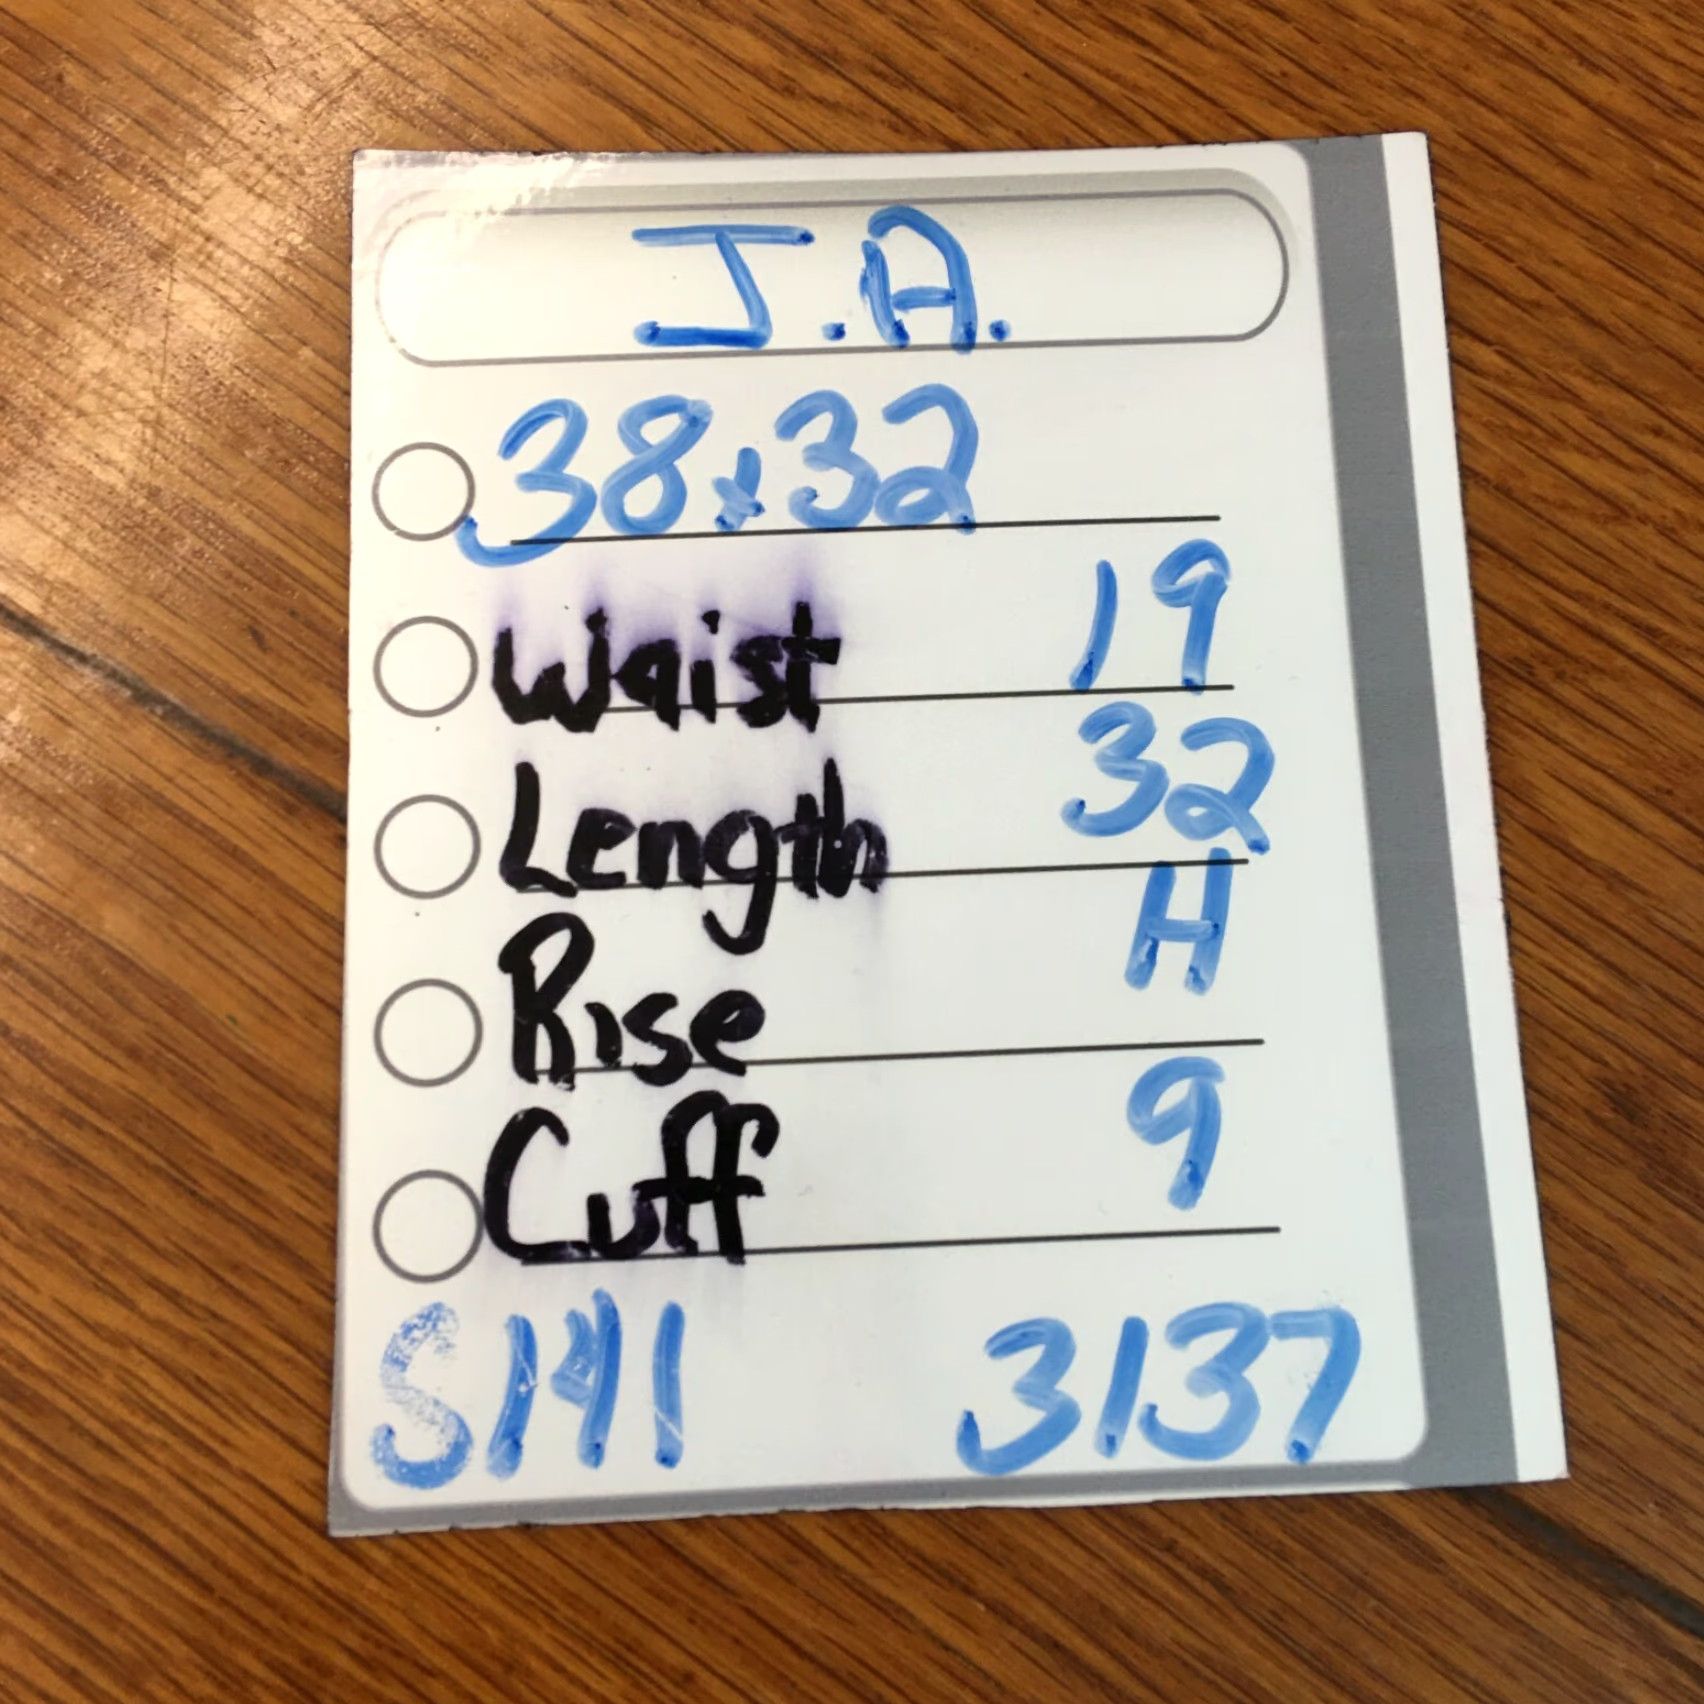 J.A.
38x32
Waist 19
Length 32
Rise H
Cuff 9
S141 3137